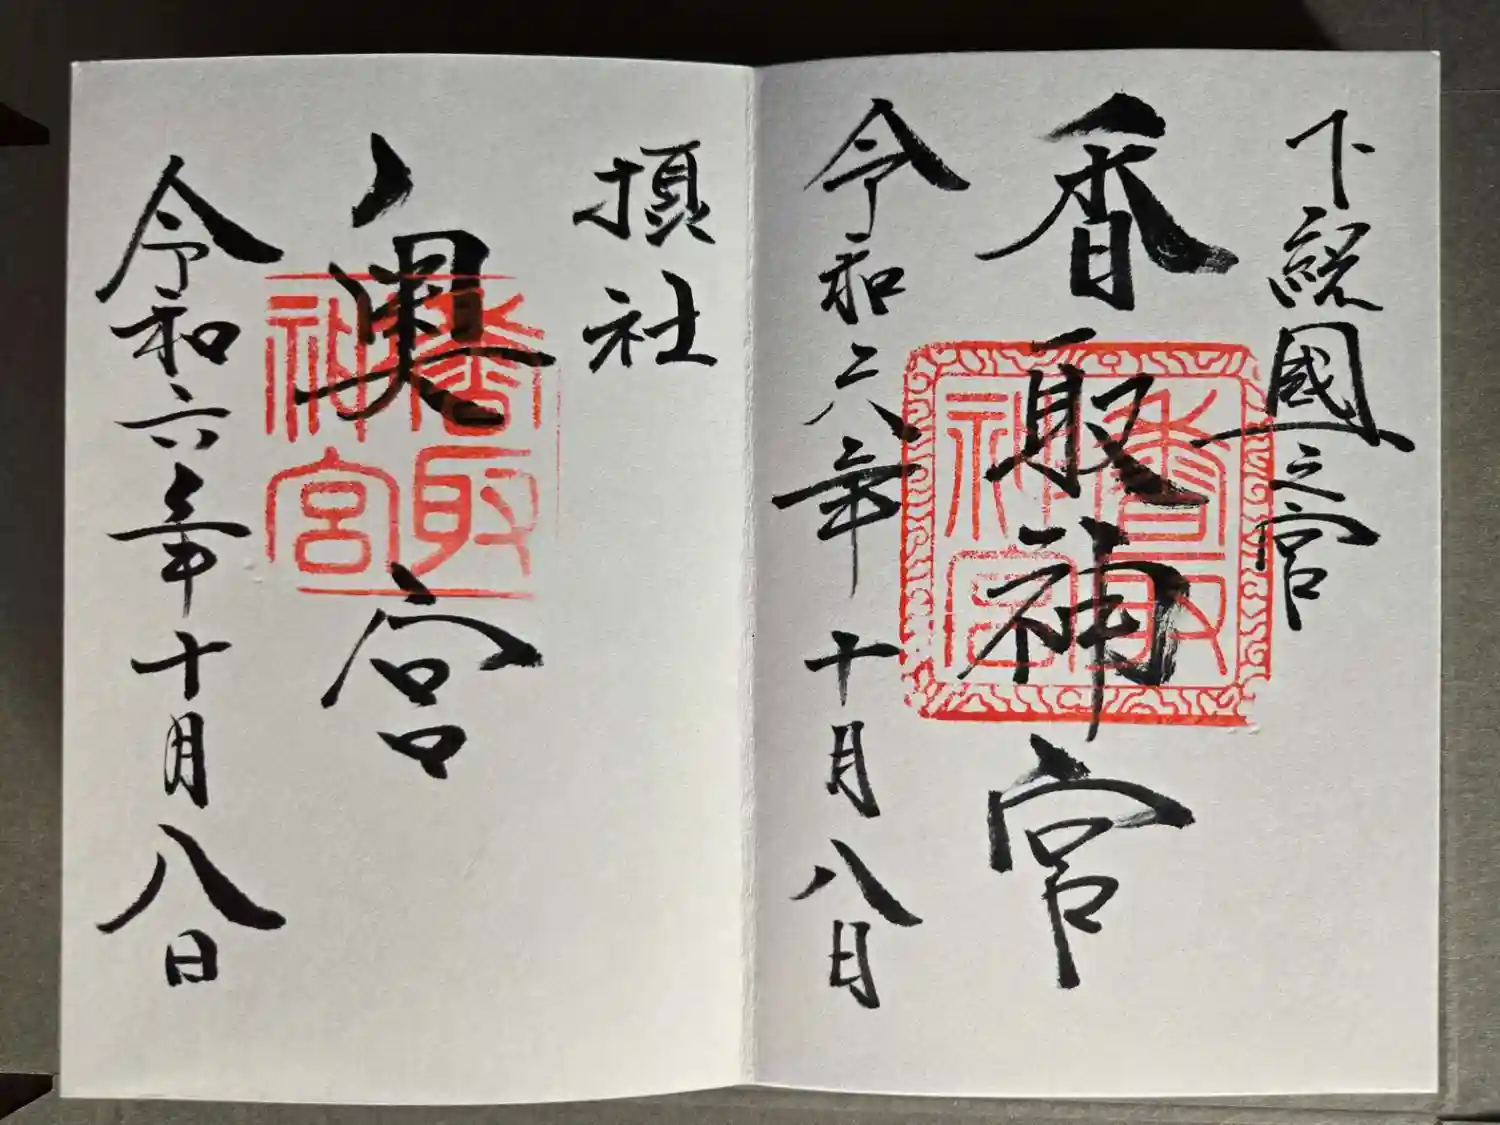 下総國之宮
香取神宮
令和六年十月八日
香取神宮
摂社
奥宮
令和六年十月八日
香取神宮